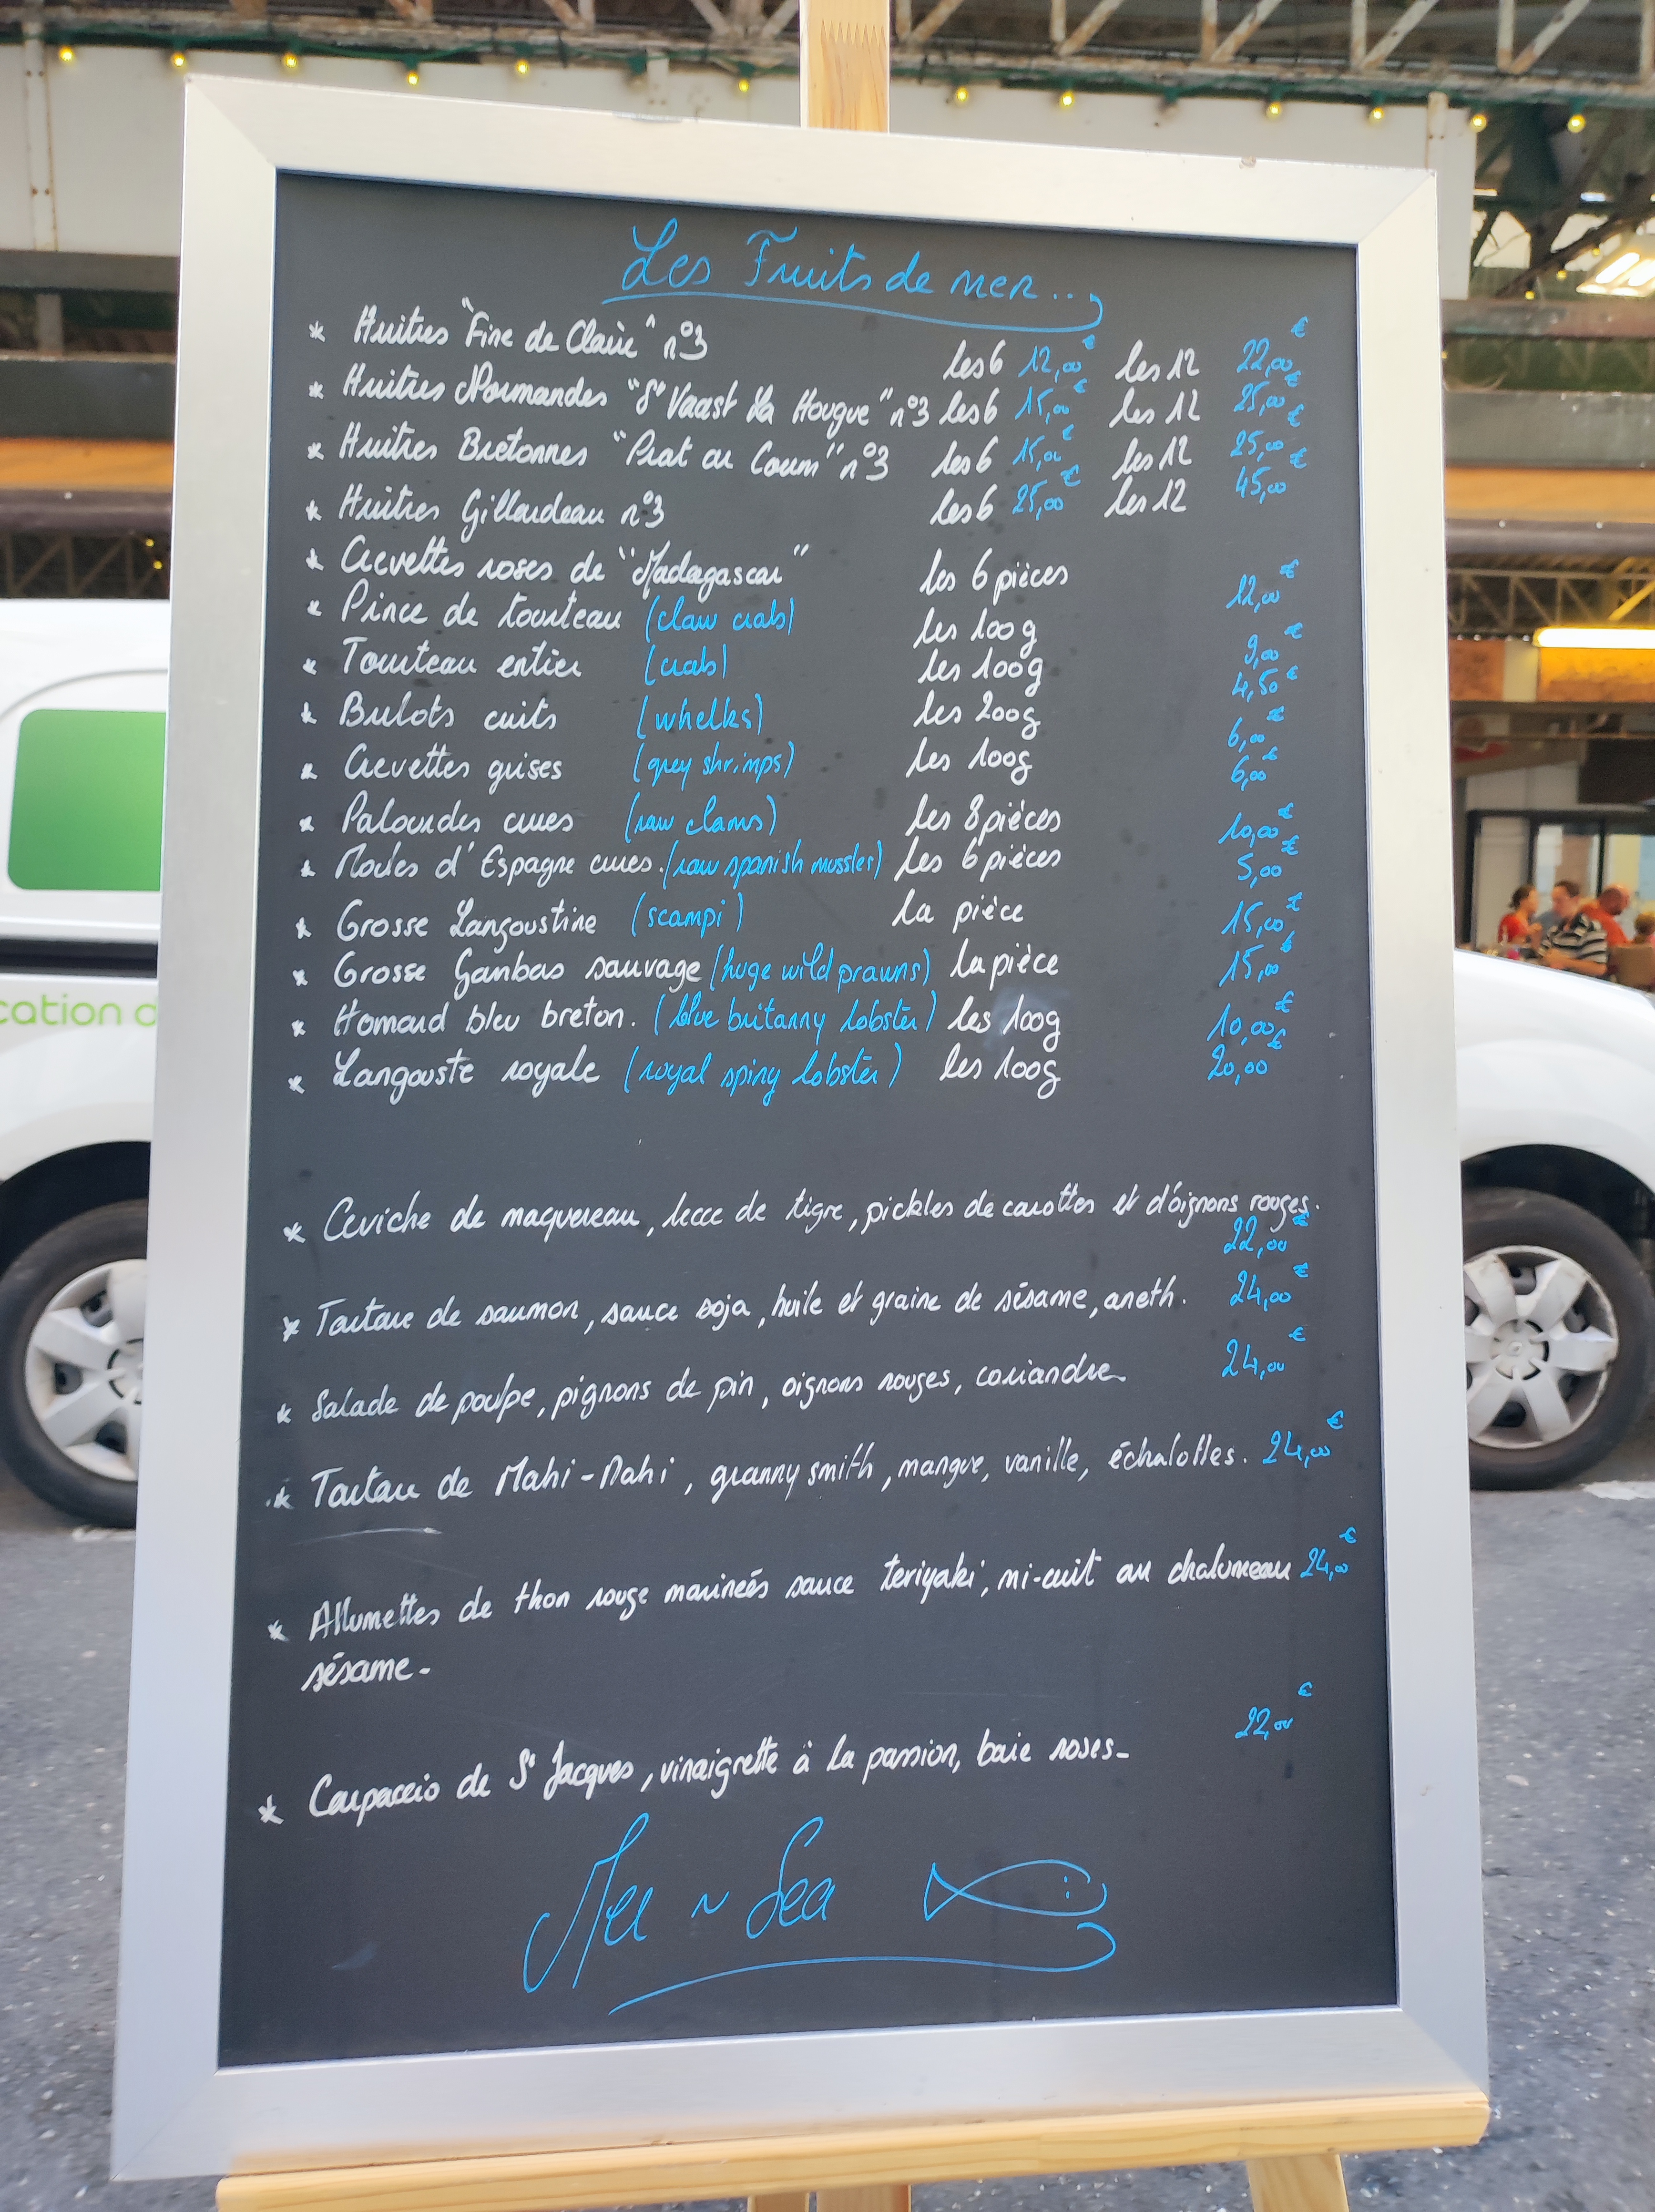 Les Fruits de mer...
* Huitres "Fine de Claire" n°3 les 6 12,00€ les 12 22,00€
* Huitres Normandes "St Vaast La Hougue" n°3 les 6 15,00€ les 12 25,00€
* Huitres Bretonnes "Prat ar Coum" n°3 les 6 15,00€ les 12 25,00€
* Huitres Gillardeau n°3 les 6 25,00€ les 12 45,00€
* Crevettes roses de "Madagascar" les 6 pièces 12,00€
* Pince de tourteau (claw crab) les 100g 9,00€
* Tourteau entier (crab) les 100g 4,50€
* Bulots cuits (whelks) les 200g 6,00€
* Crevettes grises (grey shrimps) les 100g 6,00€
* Palourdes crues (raw clams) les 8 pièces 10,00€
* Moules d'Espagne crues. (raw spanish mussles) les 6 pièces 5,00€
* Grosse Langoustine (scampi) la pièce 15,00€
* Grosse Gambas sauvage (huge wild prawns) la pièce 15,00€
* Homard bleu breton. (blue britanny lobster) les 100g 10,00€
* Langouste royale (royal spiny lobster) les 100g 20,00€
* Ceviche de maquereau, lecce de tigre, pickles de carottes et d'oignons rouges.
22,00€
* Tartare de saumon, sauce soja, huile et graine de sésame, aneth. 24,00€
* Salade de poulpe, pignons de pin, oignons rouges, coriandre. 24,00€
* Tartare de Mahi-Mahi, granny smith, mangue, vanille, échalottes. 24,00€
* Allumettes de thon rouge marineés sauce teriyaki, mi-cuit au chalumeau 24,00€
sésame.
* Carpaccio de St Jacques, vinaigrette à la passion, baie roses. 22,00€
Mer ~ Sea
cation d